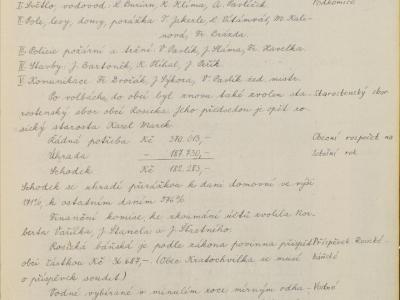 I. Světlo, vodovod: R. Burian, K. Klíma, A. Pavlíček. Podkomice
II. Pole, lesy, domy, porážka V. Jekerle, R. Vítámvás, M. Kale-
nová, Fr. Brázda
III. Policie požární a tržní: V. Pavlík, J. Sláma, Fr. Havelka.
IV. Stavby: J. Bartoněk, K. Flíhal, J.
V. Komunikace Fr. Dvořák, J. Sýkora, V. Pavlík žed. mistr.
Po volbách do obcí byl znova také zvolen sta- Starostenský sbor
rostenský sbor obcí Rosicka. Jeho předsedou je opět ro-
sický starosta Karel Marek.
Řádná potřeba Kč 370.013,- Obecní rozpočet na
Úhrada „ 187.730,- letošní rok
Schodek Kč 182.283,-
Schodek se uhradí přirážkou k dani domovní ve výši
191%, k ostatním daním 376%
Finanční komise, ke zkoumání účtů zvolila Nor-
berta Vařilka, J. Stanela a J. Šťastného.
Rosická báňská je podle zákona povinna přispěti Příspěvek Rosické
obci částkou Kč 36.687,-. (Obec Kratochvilka se musí báňské
o příspěvek soudit.)
Vodné vybírané v minulém roce mírným odha- Vodné